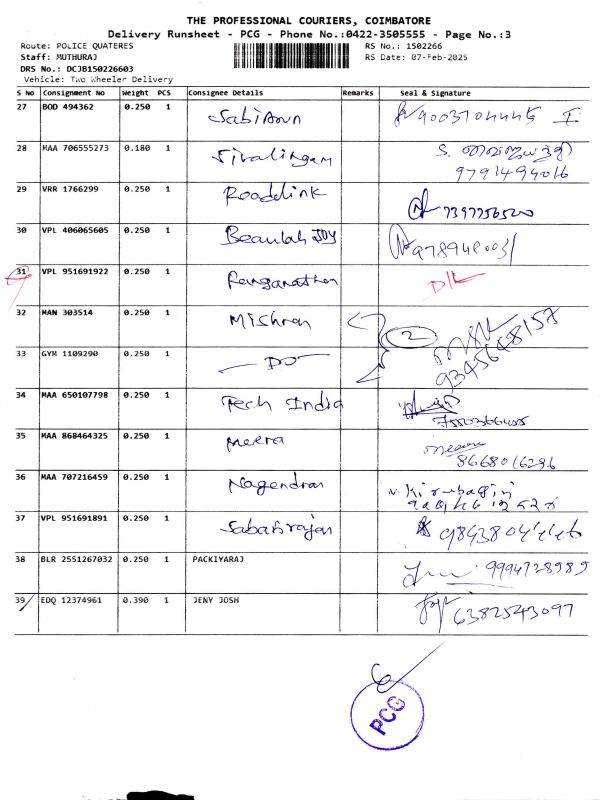 THE PROFESSIONAL COURIERS, COIMBATORE
Delivery Runsheet - PCG - Phone No.:0422-3505555 - Page No.:3
Route: POLICE QUATERES RS No.: 1502266
Staff: MUTHURAJ RS Date: 07-Feb-2025
DRS No.: DCJB150226603
Vehicle: Two Wheeler Delivery
S No Consignment No Weight PCS Consignee Details Remarks Seal & Signature
27 BOD 494362 0.250 1 Sabi
28 MAA 706555273 0.180 1 Sivalingam S.
9791494016
29 VRR 1766299 0.250 1 Roadlink 7397756520
30 VPL 406065605 0.250 1 Beaulah Joy
31 VPL 951691922 0.250 1 Ranganathan D/L
32 MAN 303514 0.250 1 Mishran
2 9345648157
33 GYM 1109290 0.250 1 DO
34 MAA 650107798 0.250 1 Tech India
35 MAA 868464325 0.250 1 Meera Meera
8668016296
36 MAA 707216459 0.250 1 Nagendran
37 VPL 951691891 0.250 1 Sabarirajan
38 BLR 2551267032 0.250 1 PACKIYARAJ 9994728989
39 EDQ 12374961 0.390 1 JENY JOSH 6382543097
PCG